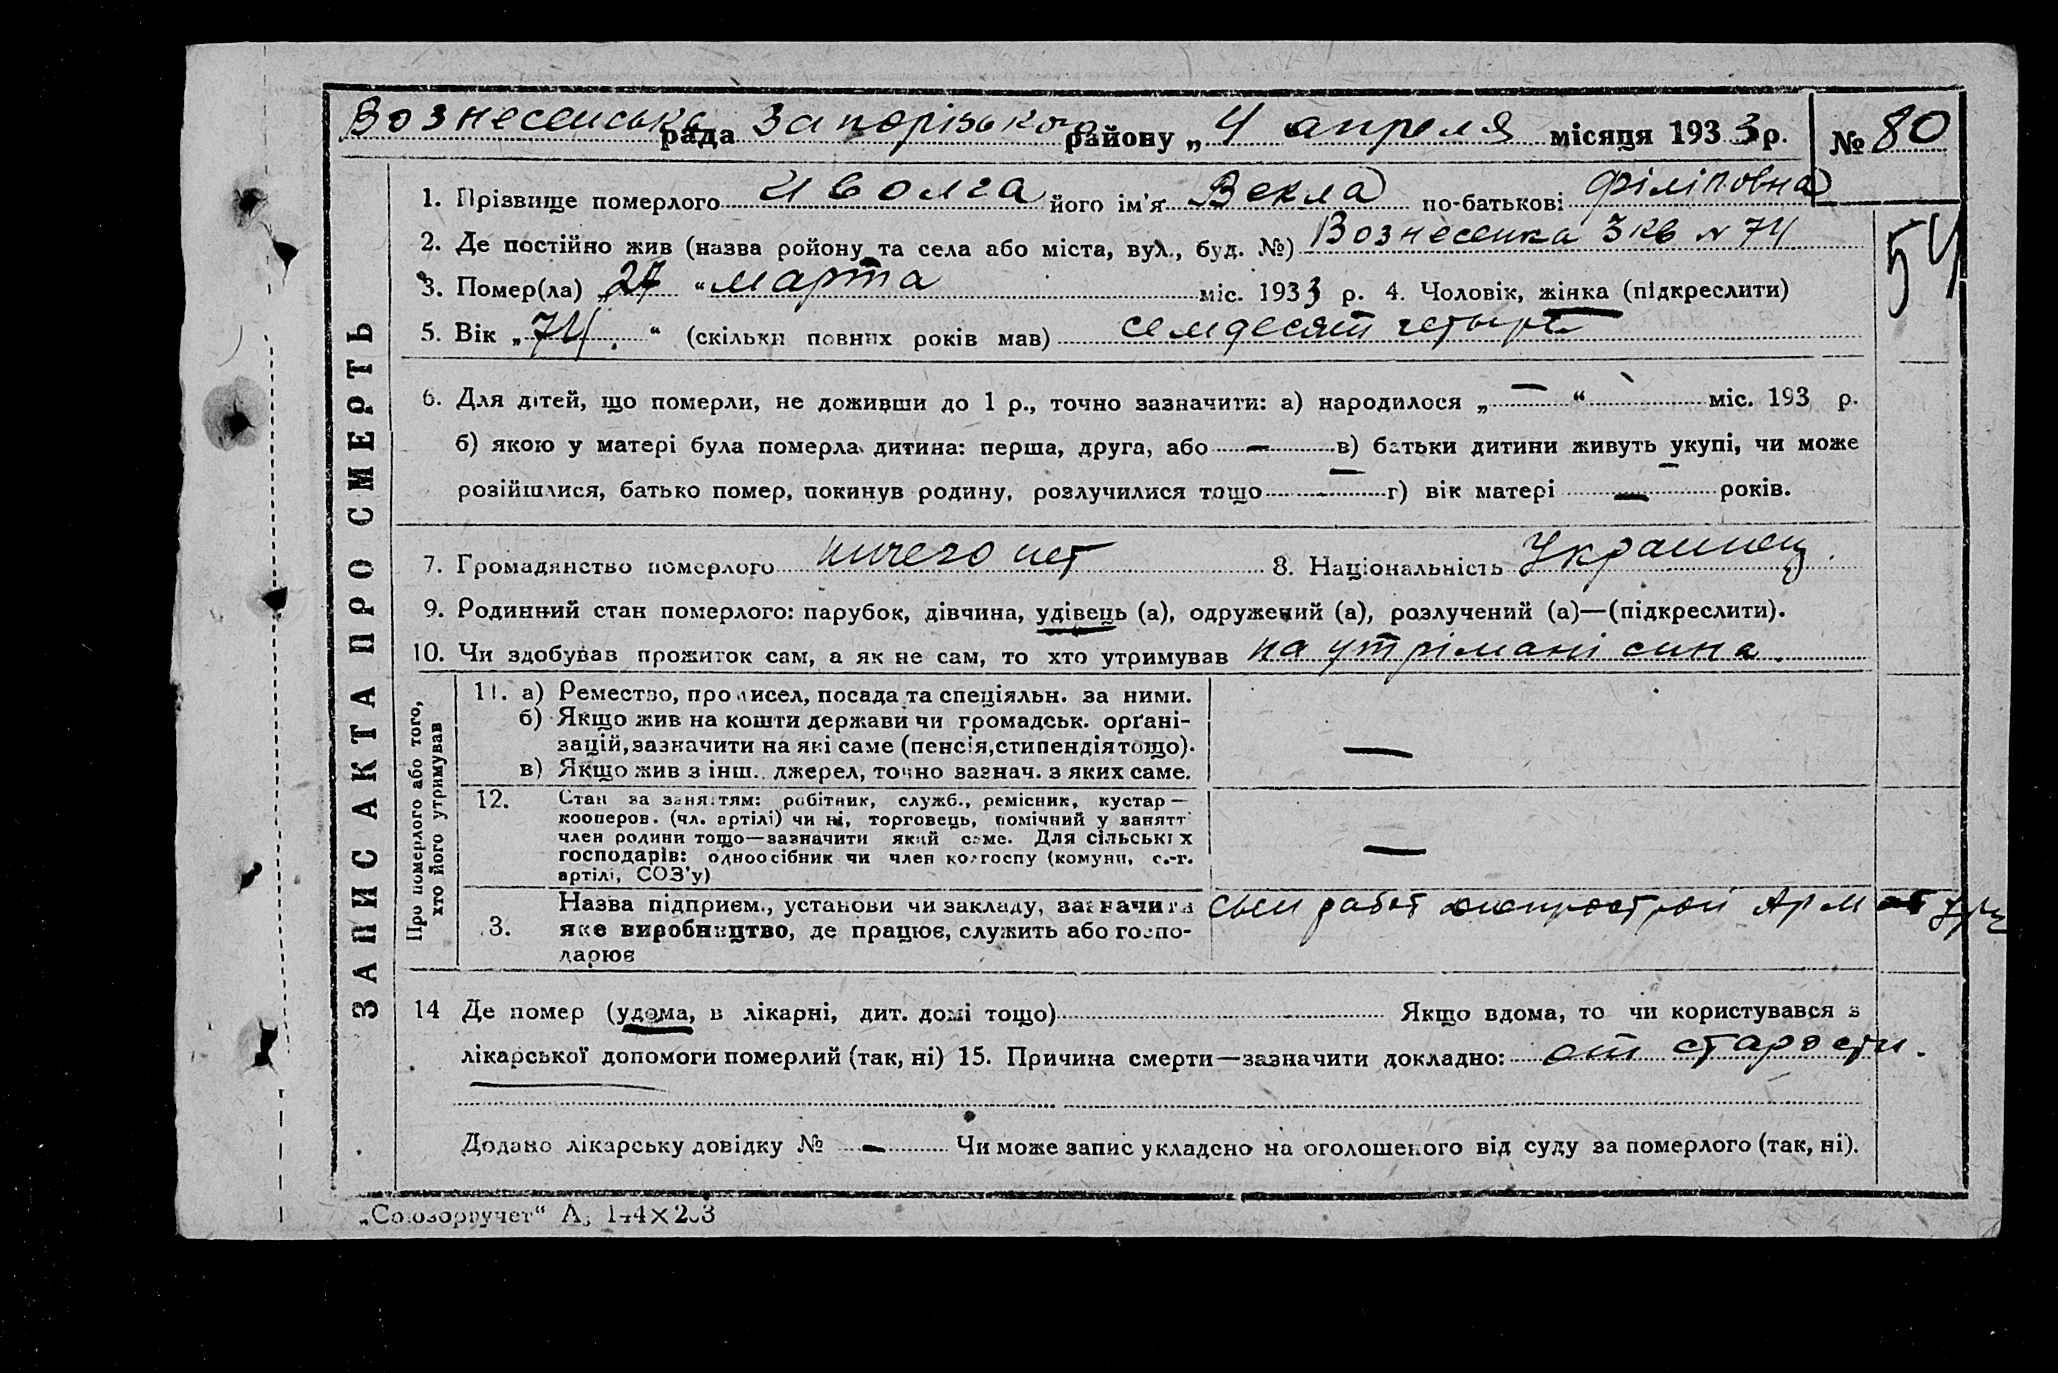 Вознесенська рада Запорізького району „ 4 апреля місяця 1933 р. № 80
1. Прізвище померлого Иволга його ім'я Векла по-батькові Філіповна
2. Де постійно жив (назва ройону та села або міста, вул., буд. №) Вознесенка 3 кв N 74
54
3. Помер(ла) „27 “ марта міс. 1933 р. 4. Чоловік, жінка (підкреслити)
5. Вік „ 74. “ (скільки повних років мав) семдесят четыре
6. Для дітей, що померли, не доживши до 1 р., точно зазначити: а) народилося „ — “ міс. 193 р.
б) якою у матері була померла дитина: перша, друга, або — в) батьки дитини живуть укупі, чи може
розійшлися, батько помер, покинув родину, розлучилися тощо — г) вік матері — років.
7. Громадянство померлого ничего нет 8. Національність Украинец.
9. Родинний стан померлого: парубок, дівчина, удівець (а), одружений (а), розлучений (а)—(підкреслити).
10. Чи здобував прожиток сам, а як не сам, то хто утримував на утрімані сина.
ЗАПИС АКТА ПРО СМЕРТЬ
Про померлого або того,
хто його утримував
11. а) Ремество, промисел, посада та спеціяльн. за ними.
б) Якщо жив на кошти держави чи громадськ. орґані-
зацій, зазначити на які саме (пенсія, стипендія тощо). —
в) Якщо жив з інш. джерел, точно зазнач. з яких саме.
12. Стан за заняттям: робітник, служб., ремісник, кустар —
кооперов. (чл. артілі) чи ні, торговець, помічний у занятт
член родини тощо—зазначити який саме. Для сільських
господарів: одноосібник чи член колгоспу (комуни, с.-г. —
артілі, СОЗ'у)
Назва підприєм., установи чи закладу, зазначити сын работ
3. яке виробництво, де працює, служить або госпо-
дарює
14 Де помер (удома, в лікарні, дит. домі тощо) Якщо вдома, то чи користувався з
лікарської допомоги померлий (так, ні) 15. Причина смерти—зазначити докладно: от старости.
Додано лікарську довідку № — Чи може запис укладено на оголошеного від суду за померлого (так, ні).
„Союзоргучет“ А5 144×203